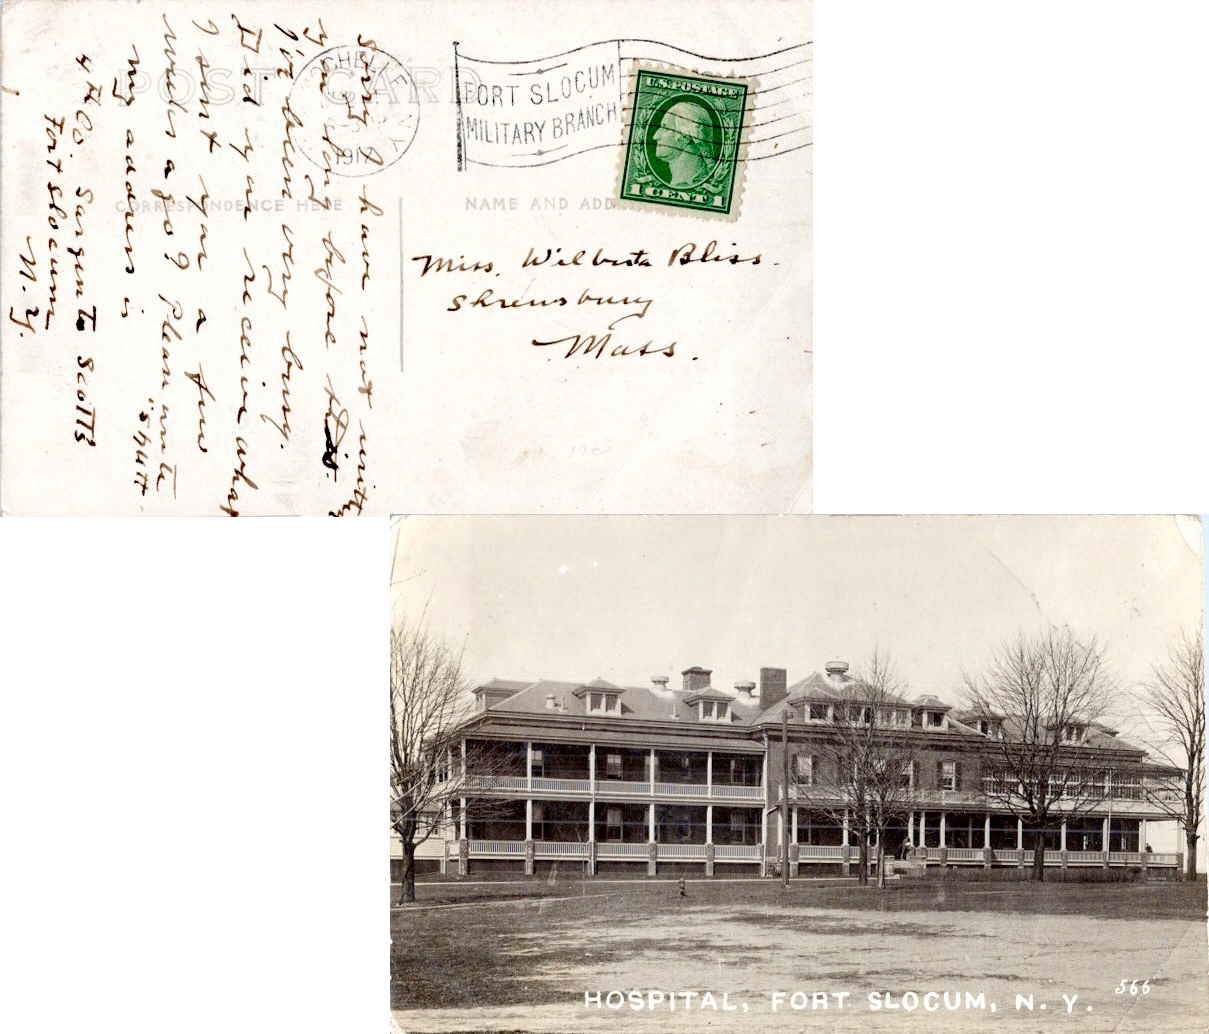 POST CARD
CORRESPONDENCE HERE
NAME AND ADD
OCHELLE
N.Y.
191
FORT SLOCUM
MILITARY BRANCH
U.S. POSTAGE
1 CENT 1
Sorry I have not written
you long before this.
for been very busy.
Did you receive what
I sent you a few
weeks ago? Please write
my address is
4th Co.
Fort Slocum
N. Y.
Miss. Wilberta Bliss.
Shrewsbury
Mass.
HOSPITAL, FORT SLOCUM, N. Y.
566